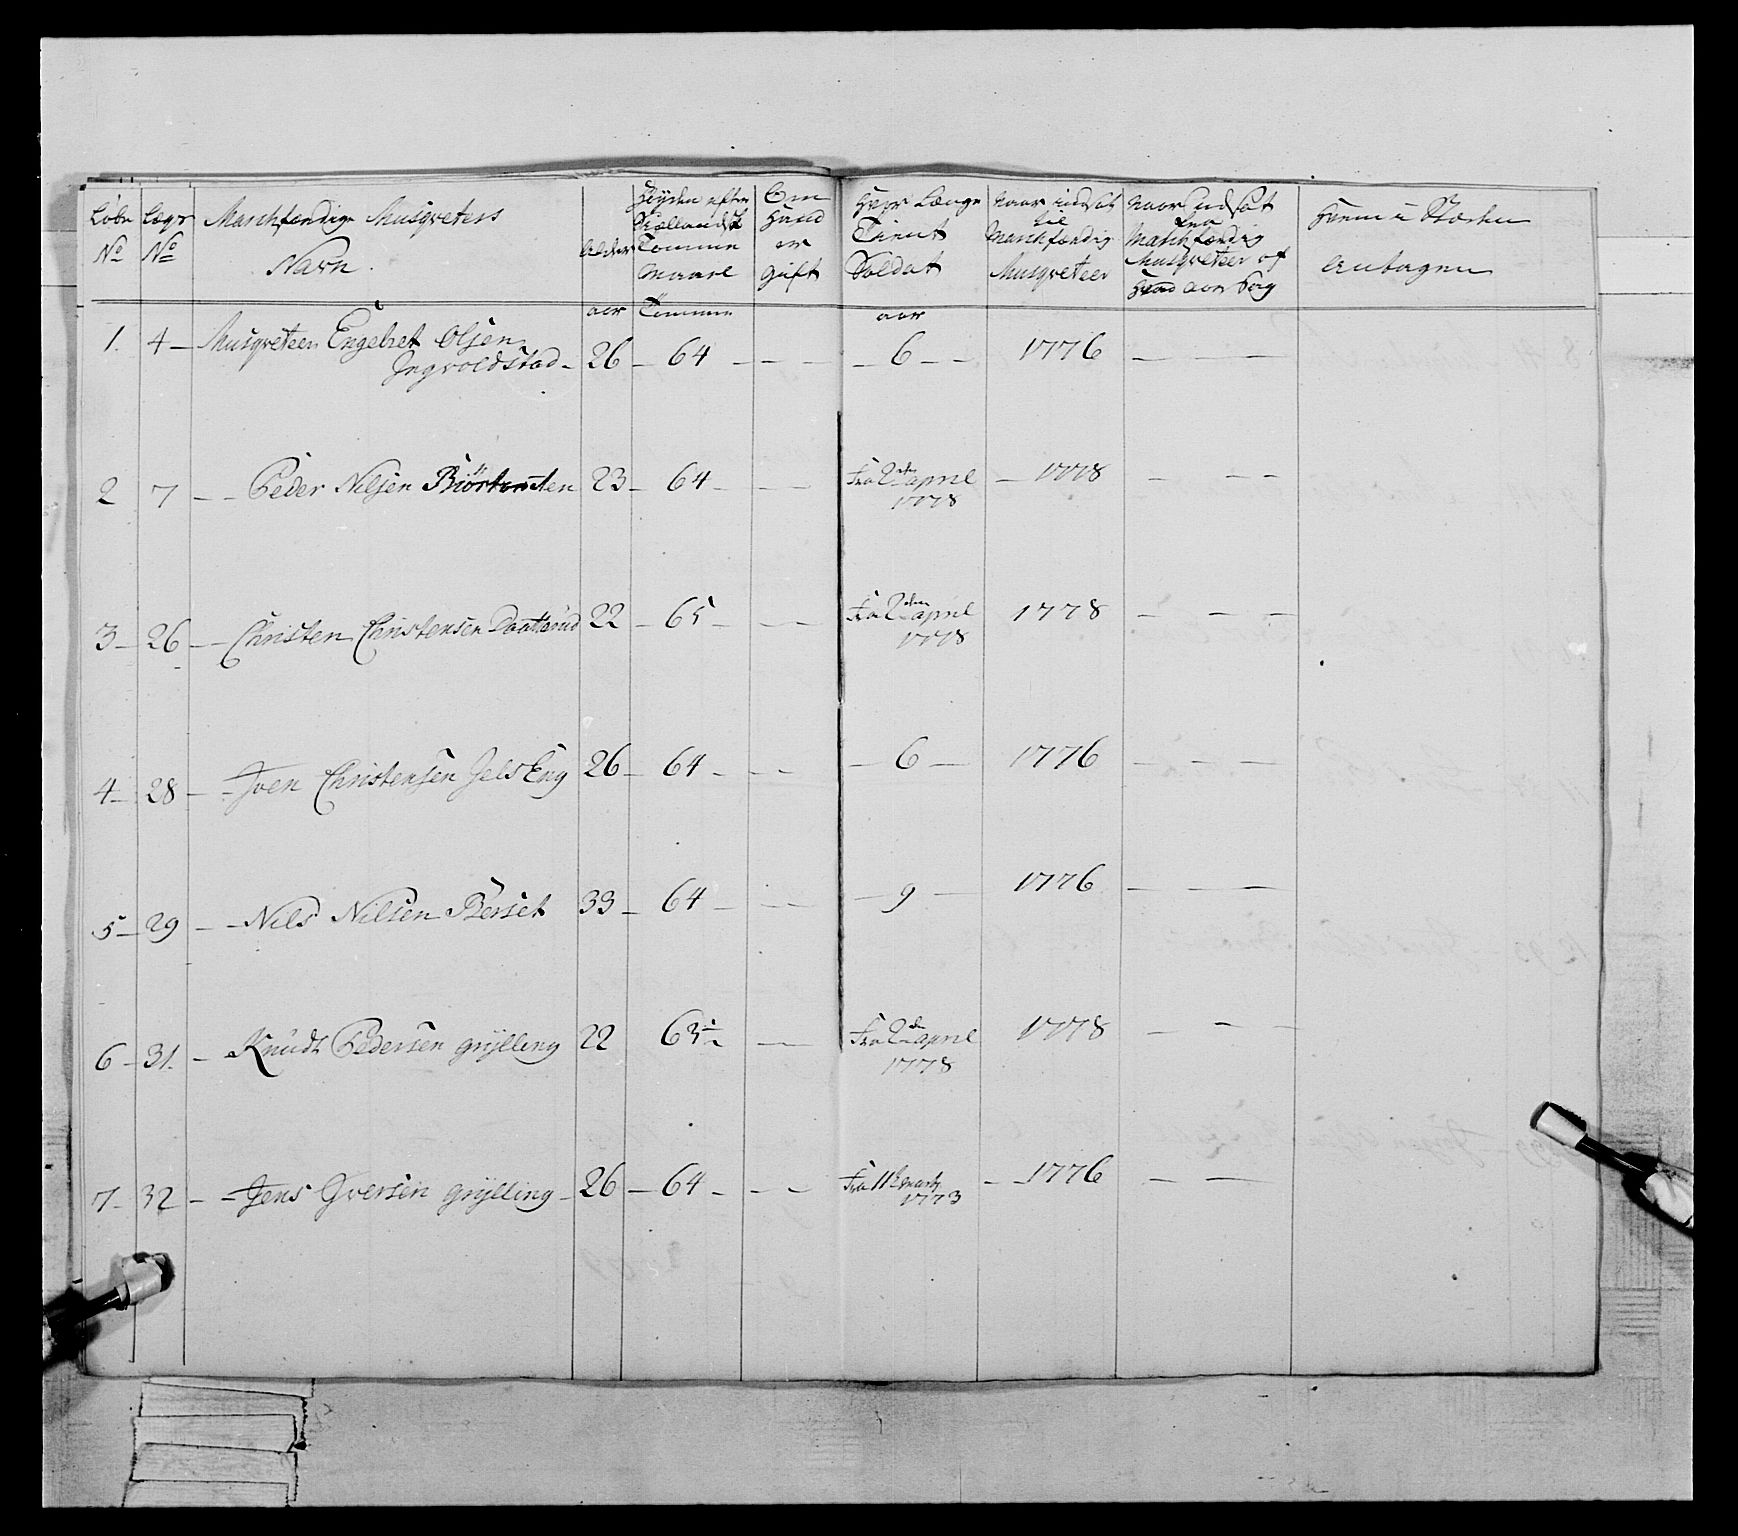 Løbe No
Lægs No
Marchfærdige Musqveters Navn.
Alder
Høyden efter Siællandsk Tomme Maael
Om Hand er Gift
Hvor Længe Tient Soldat
Naar indsat til Marchfærdig Musqveteer
Naar udsat fra Marchfærdig Musqveteer af
Hvem i Stæden Antagen
aar Tomme aar
1. 4 – Musqveteer Engebret Olsen
Ingvoldstad – 26 – 64 – – – – 6 – – 1776 – – –
2 7 – – Peder Nilsen 23 – 64 – – – Fra 2den april – 1778 – – –
1778
3 – 26 – – Christen Christensen 22 – 65 – – – Fra 2den april 1778 – – –
1778
4 – 28 – – Iven Christensen Jels Eng 26 – 64 – – – – 6 – 1776 – – –
5 – 29 – – Nils Nilsen Berset 33 – 64 – – – – 9 – 1776 – – –
6 – 31. – Knudt Pedersen grÿlling 22 63½ – Fra 2den april 1778 – – –
1778
7 – 32 – – Jens Iversen grÿlling – 26 – 64 – – – Fra 11te marts – 1776 – –
1773